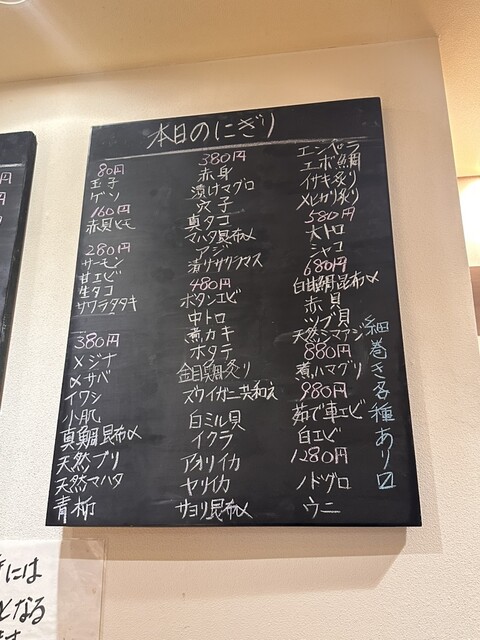 本日のにぎり
80円
玉子
ゲソ
160円
赤貝ヒモ
280円
サーモン
甘エビ
生タコ
サワラタタキ
380円
メジナ
〆サバ
イワシ
小肌
真鯛昆布〆
天然ブリ
天然マハタ
青柳
380円
赤身
漬けマグロ
穴子
真タコ
マハタ昆布〆
アジ
漬けサクラマス
480円
ボタンエビ
中トロ
煮カキ
ホタテ
金目鯛炙り
ズワイガニ共和え
白ミル貝
イクラ
アオリイカ
ヤリイカ
サヨリ昆布〆
エンペラ
エボ鯛
イサキ炙り
メヒカリ炙り
580円
大トロ
シャコ
680円
白甘鯛昆布〆
赤貝
ツブ貝
天然シマアジ
880円
煮ハマグリ
980円
茹で車エビ
白エビ
1280円
ノドグロ
ウニ
細巻き各種あり〼
円
には
となる